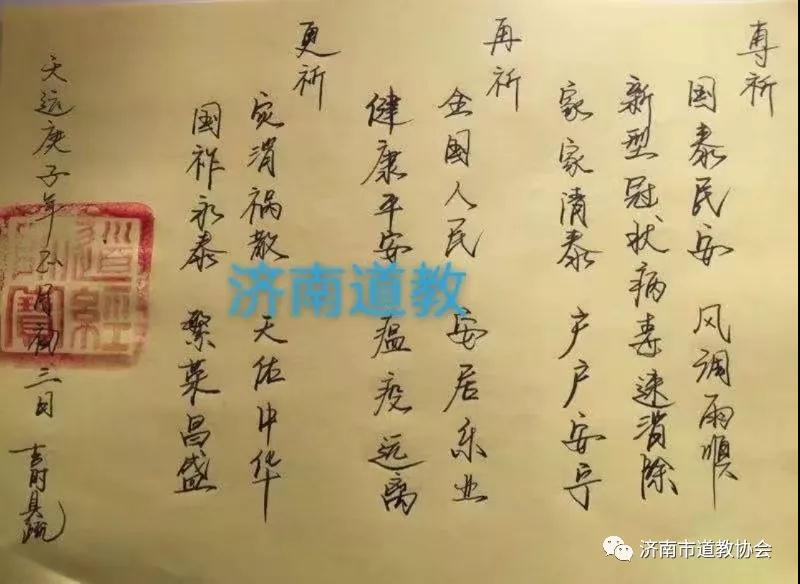 专祈
国泰民安 风调雨顺
新型冠状病毒速消除
家家清泰 户户安宁
再祈
全国人民 安居乐业
健康平安 瘟疫远离
更祈
灾消祸散 天佑中华
国祚永泰 繁荣昌盛
天运庚子年正月初三日 吉时具疏
道经師寶
济南道教
济南市道教协会